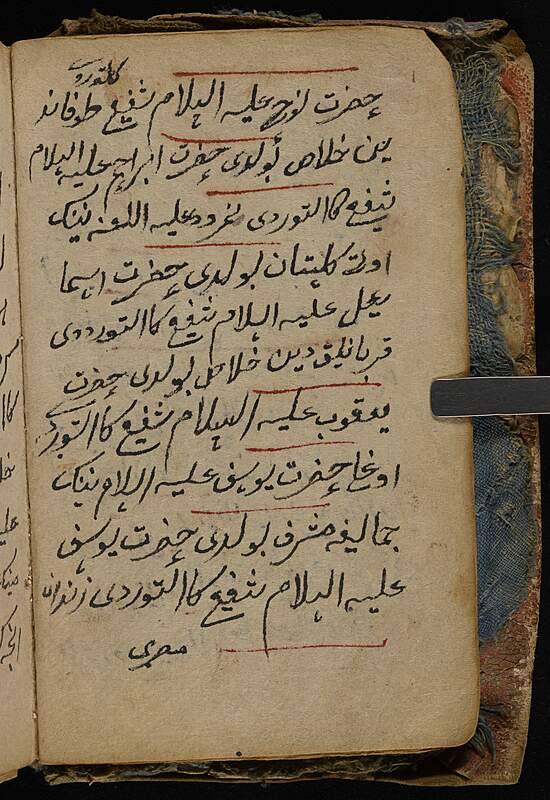 كالتوردى
حضرت نوح عليه السلام شفيع طوفاند
ين خلاص بولدى حضرت ابراهيم عليه السلام
شفيع كالتوردى نمرود عليه اللعنه نينك
اوتى كلستان بولدى حضرت اسما
عيل عليه السلام شفيع كالتوردى
قربانليق دين خلاص بولدى حضرت
يعقوب عليه السلام شفيع كالتور
اوغلى حضرت يوسف عليه السلام نينك
جماليغه مشرف بولدى حضرت يوسف
عليه السلام شفيع كالتوردى زندان
مصرى